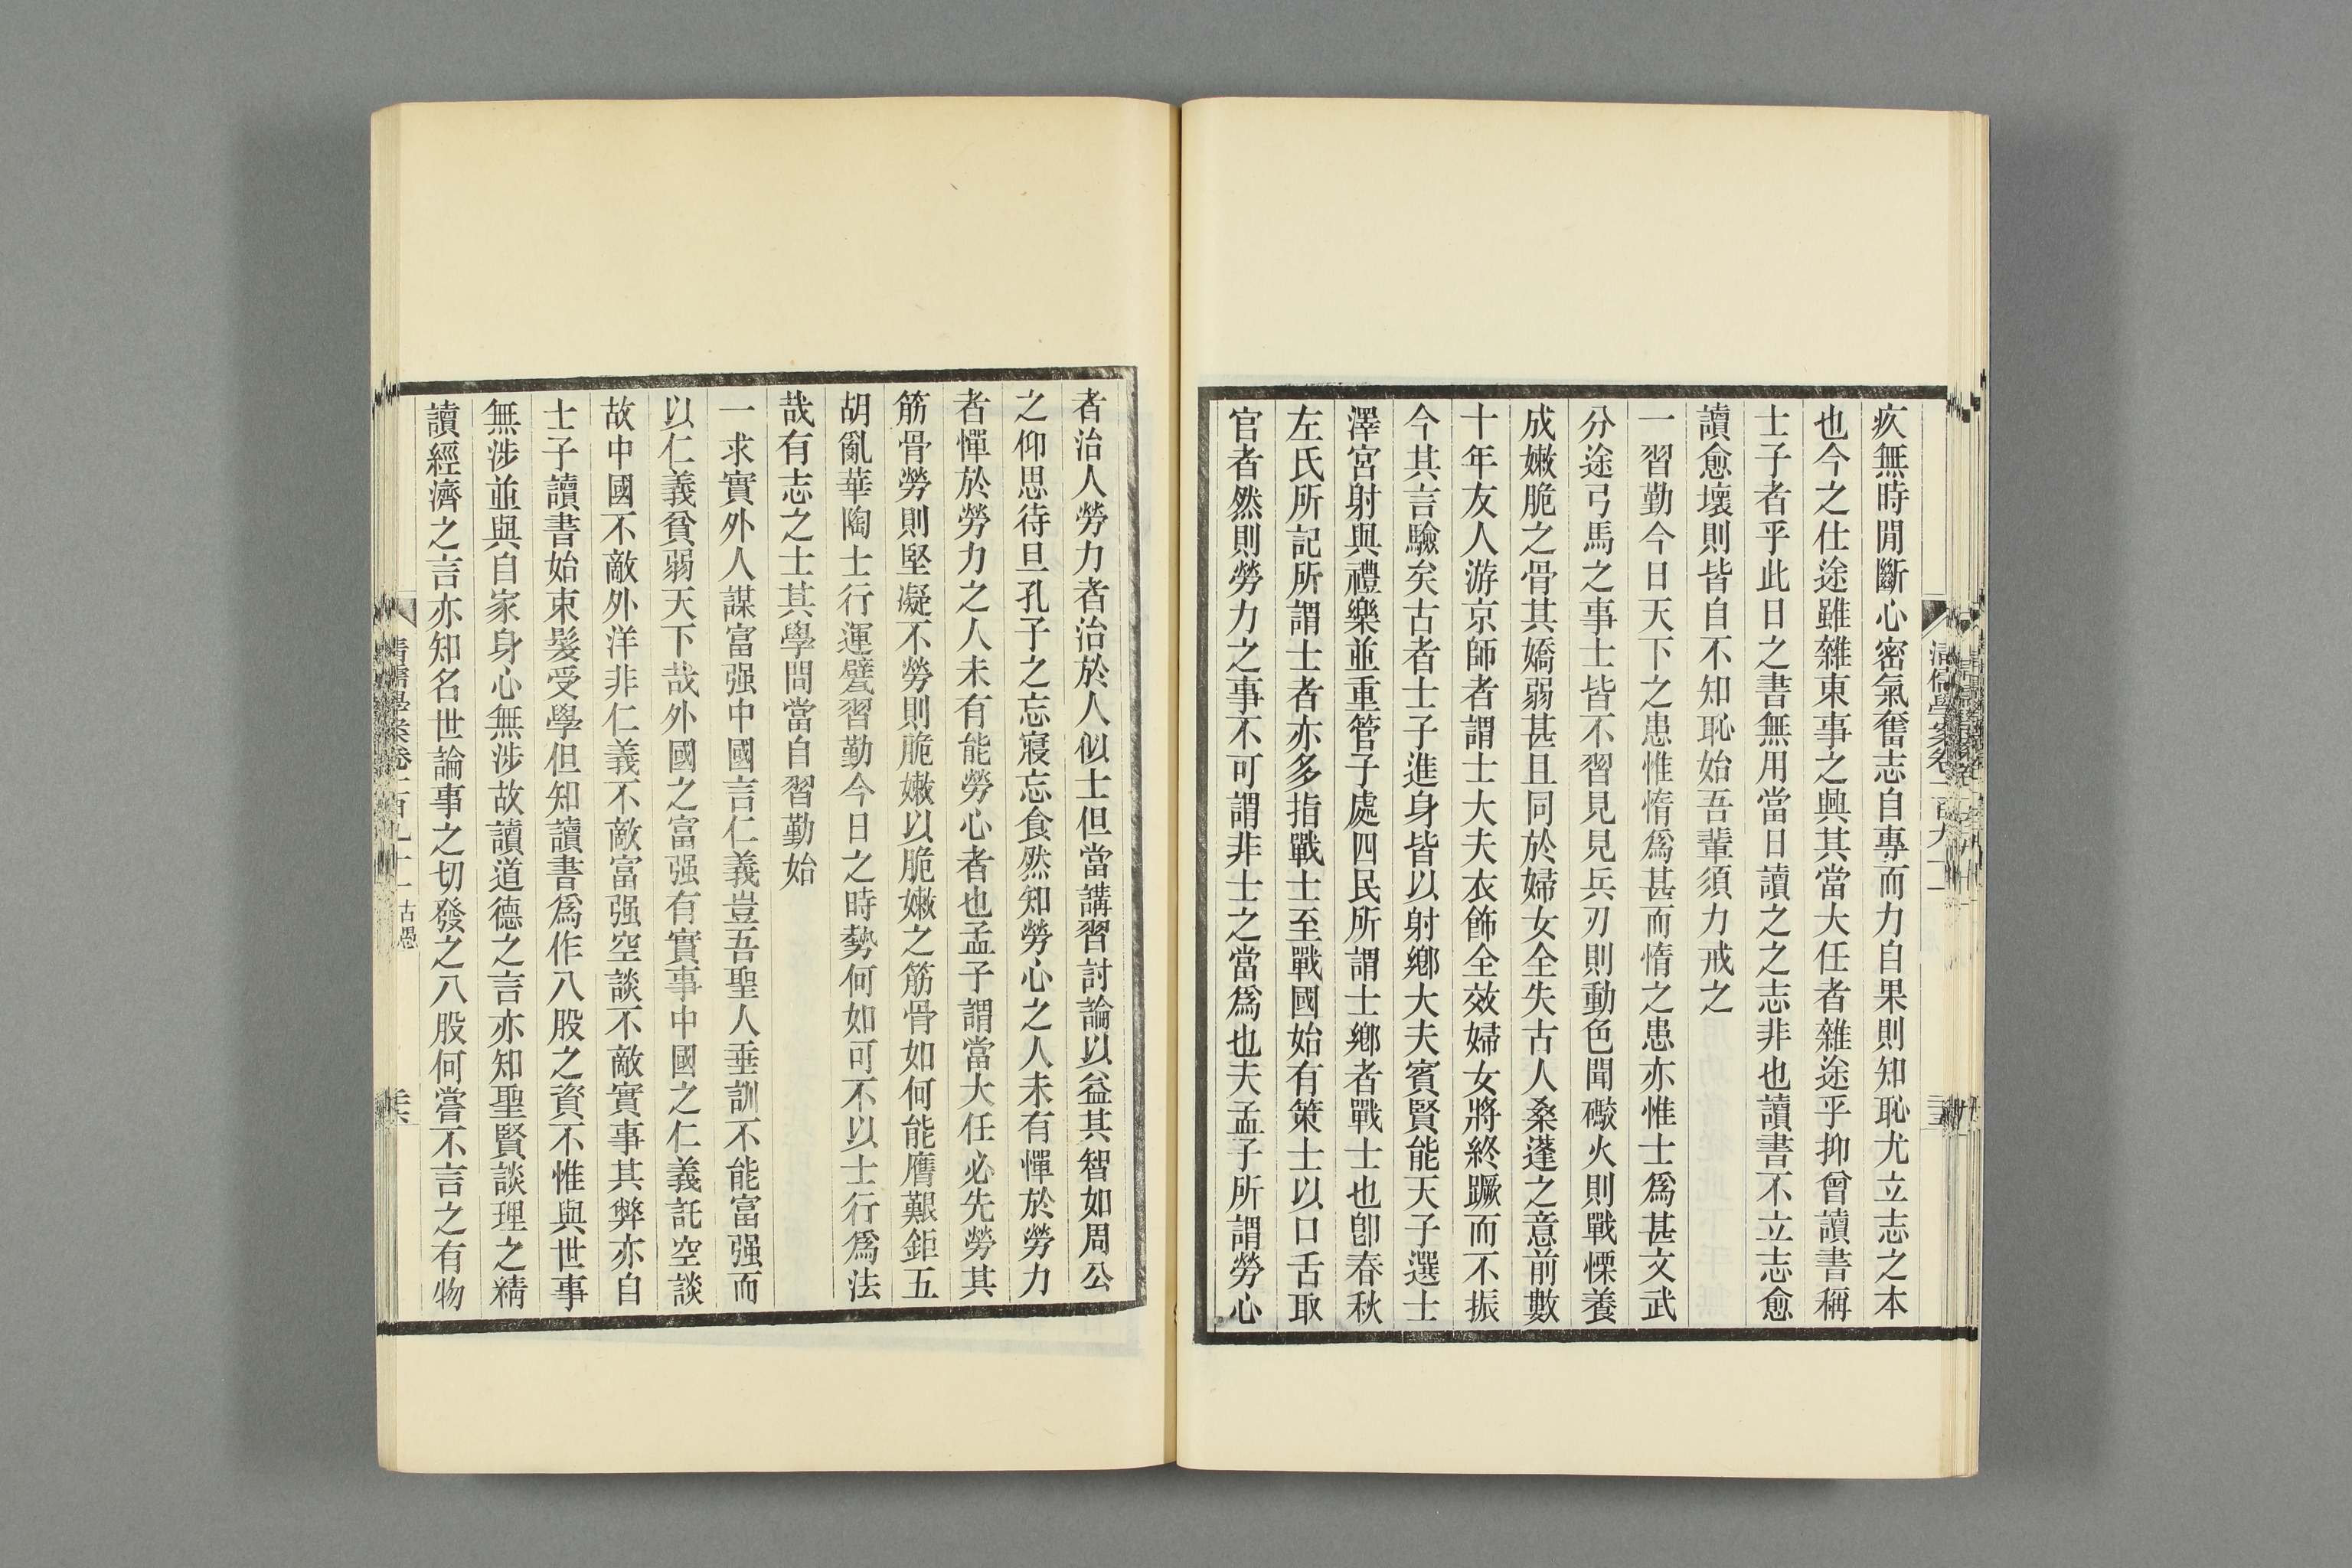 疚無時閒斷心密氣奮志自專而力自果則知恥尤立志之本
也今之仕途雖雜東事之興其當大任者雜途乎抑曾讀書稱
士子者乎此日之書無用當日讀之之志非也讀書不立志愈
讀愈壞則皆自不知恥始吾輩須力戒之
一習勤今日天下之患惟惰爲甚而惰之患亦惟士爲甚文武
分途弓馬之事士皆不習見見兵刃則動色聞礮火則戰慄養
成嫩脆之骨其嬌弱甚且同於婦女全失古人桑蓬之意前數
十年友人游京師者謂士大夫衣飾全效婦女將終蹶而不振
今其言驗矣古者士子進身皆以射鄉大夫賓賢能天子選士
澤宮射與禮樂並重管子處四民所謂士鄉者戰士也卽春秋
左氏所記所謂士者亦多指戰士至戰國始有策士以口舌取
官者然則勞力之事不可謂非士之當爲也夫孟子所謂勞心
者治人勞力者治於人似士但當講習討論以益其智如周公
之仰思待旦孔子之忘寢忘食然知勞心之人未有憚於勞力
者憚於勞力之人未有能勞心者也孟子謂當大任必先勞其
筋骨勞則堅凝不勞則脆嫩以脆嫩之筋骨如何能膺艱鉅五
胡亂華陶士行運甓習勤今日之時勢何如可不以士行爲法
哉有志之士其學問當自習勤始
一求實外人謀富强中國言仁義豈吾聖人垂訓不能富强而
以仁義貧弱天下哉外國之富强有實事中國之仁義託空談
故中國不敵外洋非仁義不敵富强空談不敵實事其弊亦自
士子讀書始束髮受學但知讀書爲作八股之資不惟與世事
無涉並與自家身心無涉故讀道德之言亦知聖賢談理之精
讀經濟之言亦知名世論事之切發之八股何嘗不言之有物
清儒學案卷一百九十一 古愚